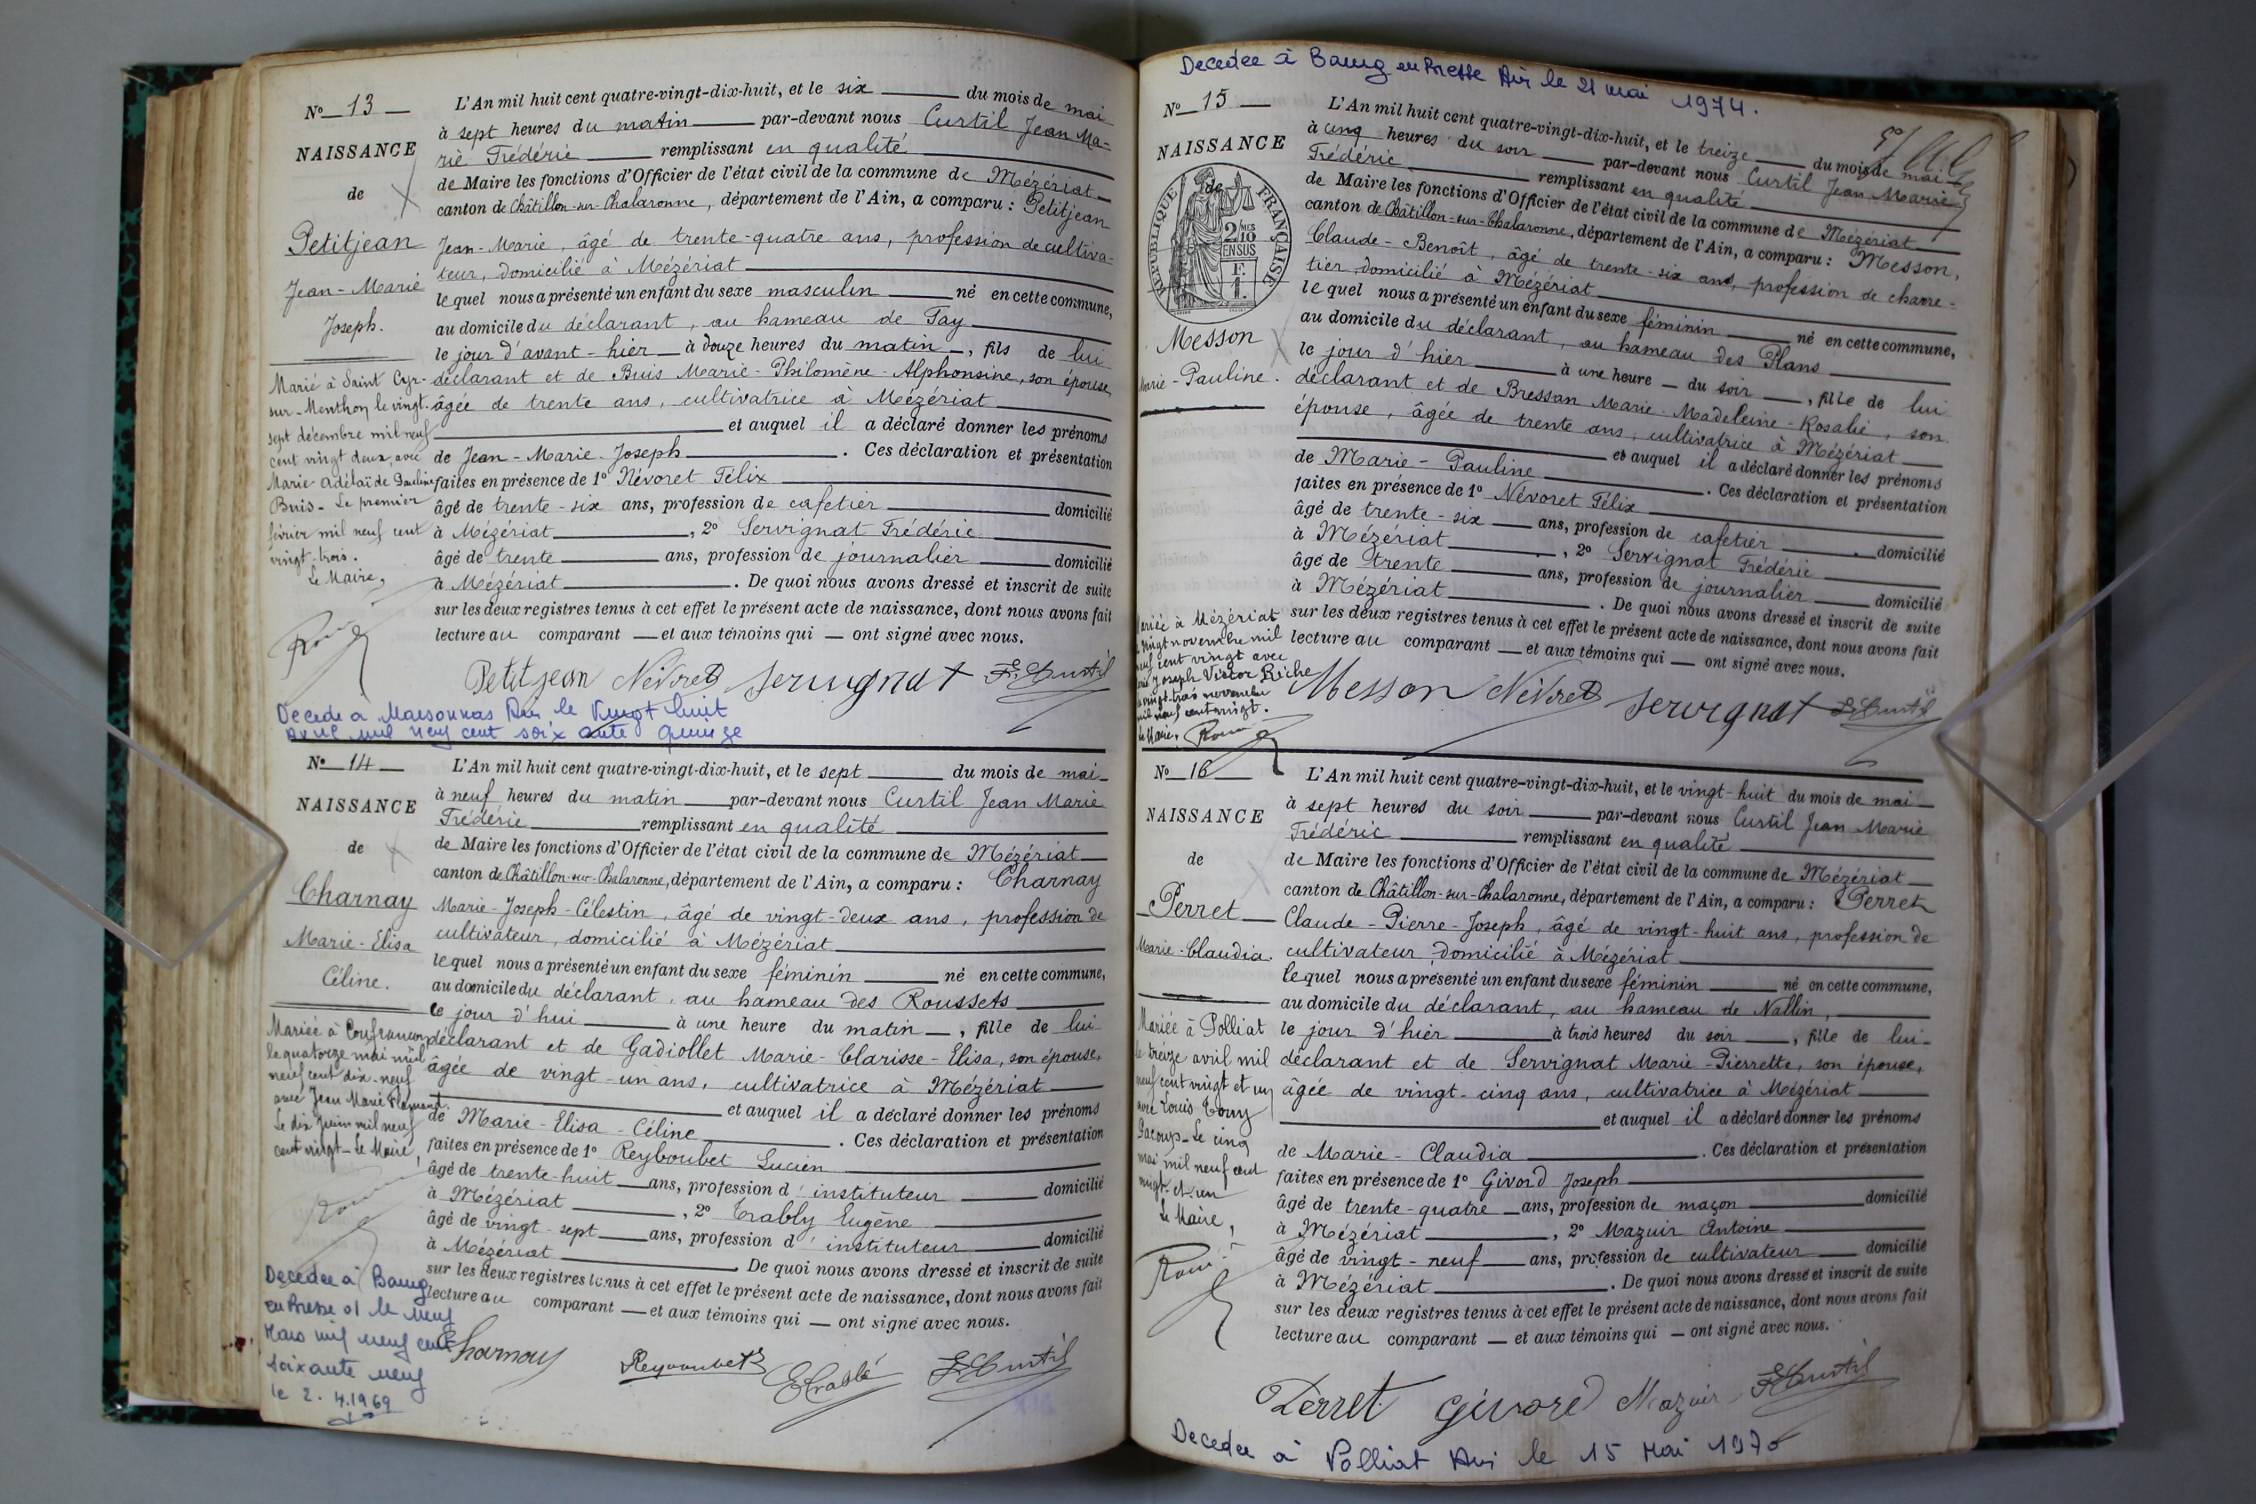 Nº 13
NAISSANCE
de
Petitjean
Jean-Marie
Joseph.
Marié à Saint Cyr-
sur-Menthon le vingt-
sept décembre mil neuf
cent vingt deux, avec
Marie Adélaïde Pauline
Buis. Le premier
février mil neuf cent
vingt-trois.
Le Maire,
L'An mil huit cent quatre-vingt-dix-huit, et le six du mois de mai
à sept heures du matin par-devant nous Curtil Jean Ma-
rie Frédéric remplissant en qualité
de Maire les fonctions d'Officier de l'état civil de la commune de Mézériat
canton de Châtillon-sur-Chalaronne, département de l'Ain, a comparu : Petitjean
Jean-Marie, âgé de trente-quatre ans, profession de cultiva-
teur, domicilié à Mézériat
lequel nous a présenté un enfant du sexe masculin né en cette commune,
au domicile du déclarant, au hameau de Tay
le jour d'avant-hier à douze heures du matin, fils de lui
déclarant et de Buis Marie-Philomène-Alphonsine, son épouse,
âgée de trente ans, cultivatrice à Mézériat
et auquel il a déclaré donner les prénoms
de Jean-Marie-Joseph. Ces déclaration et présentation
faites en présence de 1º Névoret Félix
âgé de trente-six ans, profession de cafetier domicilié
à Mézériat, 2º Servignat Frédéric
âgé de trente ans, profession de journalier domicilié
à Mézériat. De quoi nous avons dressé et inscrit de suite
sur les deux registres tenus à cet effet le présent acte de naissance, dont nous avons fait
lecture au comparant et aux témoins qui ont signé avec nous.
Petitjean Névoret Servignat F. Curtil
Decede à Marsonnas Ain le vingt huit
avril mil neuf cent soixante quinze
Nº 14
NAISSANCE
de
Charnay
Marie-Elisa
Céline.
Mariée à Confrançon
le quatorze mai mil
neuf cent dix-neuf
avec Jean Marie
Le dix juin mil neuf
cent vingt - Le Maire,
Decedee à Bourg
en Bresse 01 le neuf
Mars mil neuf cent
soixante neuf
le 2.4.1969
L'An mil huit cent quatre-vingt-dix-huit, et le sept du mois de mai
à neuf heures du matin par-devant nous Curtil Jean Marie
Frédéric remplissant en qualité
de Maire les fonctions d'Officier de l'état civil de la commune de Mézériat
canton de Châtillon-sur-Chalaronne, département de l'Ain, a comparu : Charnay
Marie-Joseph-Célestin, âgé de vingt-deux ans, profession de
cultivateur, domicilié à Mézériat
lequel nous a présenté un enfant du sexe féminin né en cette commune,
au domicile du déclarant, au hameau des Roussets
le jour d'hui à une heure du matin, fille de lui
déclarant et de Gadiollet Marie-Clarisse-Elisa, son épouse,
âgée de vingt-un ans, cultivatrice à Mézériat
et auquel il a déclaré donner les prénoms
de Marie-Elisa-Céline. Ces déclaration et présentation
faites en présence de 1º Reyboubet Lucien
âgé de trente-huit ans, profession d'instituteur domicilié
à Mézériat, 2º Crably Eugène
âgé de vingt-sept ans, profession d'instituteur domicilié
à Mézériat. De quoi nous avons dressé et inscrit de suite
sur les deux registres tenus à cet effet le présent acte de naissance, dont nous avons fait
lecture au comparant et aux témoins qui ont signé avec nous.
Charnay Reyboubet F. Curtil
Decedee à Bourg en Bresse Ain le 21 mai 1974.
Nº 15
NAISSANCE
de
RÉPUBLIQUE FRANÇAISE
2 MES
10
EN SUS
F.
1.
Messon
Marie-Pauline.
Mariée à Mézériat
vingt novembre mil
neuf cent vingt avec
Joseph Victor Riche
vingt-trois novembre
mil neuf cent vingt.
Le Maire,
L'An mil huit cent quatre-vingt-dix-huit, et le treize du mois de mai
à cinq heures du soir par-devant nous Curtil Jean Marie
Frédéric remplissant en qualité
de Maire les fonctions d'Officier de l'état civil de la commune de Mézériat
canton de Châtillon-sur-Chalaronne, département de l'Ain, a comparu : Messon,
Claude-Benoît, âgé de trente-six ans, profession de charre-
tier domicilié à Mézériat
lequel nous a présenté un enfant du sexe féminin né en cette commune,
au domicile du déclarant, au hameau des Plans
le jour d'hier à une heure du soir, fille de lui
déclarant et de Bressan Marie-Madeleine-Rosalie, son
épouse, âgée de trente ans, cultivatrice à Mézériat
et auquel il a déclaré donner les prénoms
de Marie-Pauline. Ces déclaration et présentation
faites en présence de 1º Névoret Félix
âgé de trente-six ans, profession de cafetier domicilié
à Mézériat, 2º Servignat Frédéric
âgé de trente ans, profession de journalier domicilié
à Mézériat. De quoi nous avons dressé et inscrit de suite
sur les deux registres tenus à cet effet le présent acte de naissance, dont nous avons fait
lecture au comparant et aux témoins qui ont signé avec nous.
Messon Névoret Servignat F. Curtil
Nº 16
NAISSANCE
de
Perret
Marie-Claudia.
Mariée à Polliat
le treize avril mil
neuf cent vingt et un
avec Louis Tony
Pacoup - Le cinq
mai mil neuf cent
vingt-et-un
Le Maire,
L'An mil huit cent quatre-vingt-dix-huit, et le vingt-huit du mois de mai
à sept heures du soir par-devant nous Curtil Jean Marie
Frédéric remplissant en qualité
de Maire les fonctions d'Officier de l'état civil de la commune de Mézériat
canton de Châtillon-sur-Chalaronne, département de l'Ain, a comparu : Perret
Claude-Pierre-Joseph, âgé de vingt-huit ans, profession de
cultivateur domicilié à Mézériat
lequel nous a présenté un enfant du sexe féminin né en cette commune,
au domicile du déclarant, au hameau de Nallin,
le jour d'hier à trois heures du soir, fille de lui-
déclarant et de Servignat Marie-Pierrette, son épouse,
âgée de vingt-cinq ans, cultivatrice à Mézériat
et auquel il a déclaré donner les prénoms
de Marie-Claudia. Ces déclaration et présentation
faites en présence de 1º Givord Joseph
âgé de trente-quatre ans, profession de maçon domicilié
à Mézériat, 2º Mazuir Antoine
âgé de vingt-neuf ans, profession de cultivateur domicilié
à Mézériat. De quoi nous avons dressé et inscrit de suite
sur les deux registres tenus à cet effet le présent acte de naissance, dont nous avons fait
lecture au comparant et aux témoins qui ont signé avec nous.
Perret Givord Mazuir F. Curtil
Decedee à Polliat Ain le 15 Mai 1970